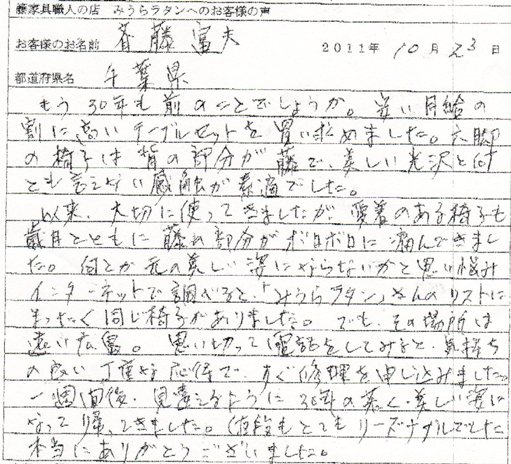 籐家具職人の店 みうらラタンへのお客様の声
お客様のお名前 斉藤富夫 2011年 10月 23日
都道府県名 千葉県
もう30年も前のことでしょうか。安い月給の
割に高いテーブルセットを買い求めました。六脚
の椅子は背の部分が藤で、美しい光沢と何
とも言えない感触が素適でした。
以来、大切に使ってきましたが、愛着のある椅子も
歳月とともに藤の部分がボロボロに痛んできまし
た。何とか元の美しい姿にならないかと思い悩み
インターネットで調べると、「みうらラタン」さんのリストに
まったく同じ椅子がありました。でも、その場所は
遠い広島。思い切って電話をしてみると、気持ち
の良い丁寧な応体で、すぐ修理を申し込みました。
一週間後、見違えるように30年の若く美しい姿に
なって帰ってきました。価格もとてもリーズナブルでした
本当にありがとうございました。